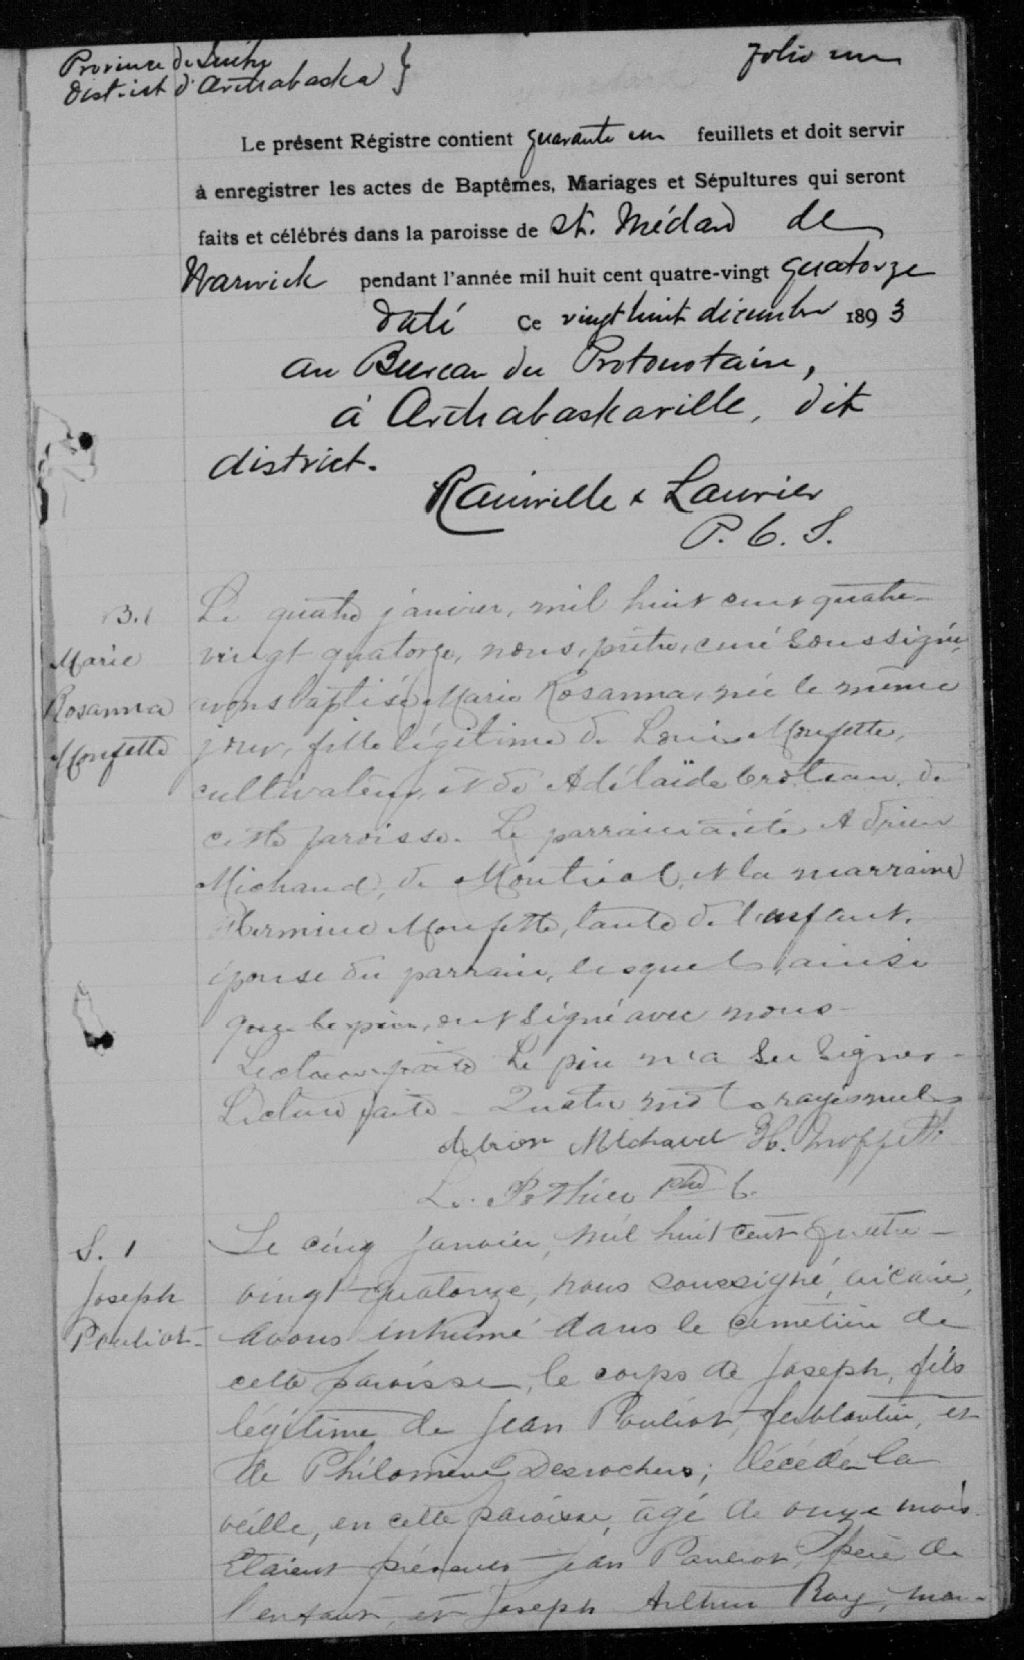 Province de Québec
District d'Arthabaska }
Folio un
Le présent Régistre contient quarante un feuillets et doit servir
à enregistrer les actes de Baptêmes, Mariages et Sépultures qui seront
faits et célébrés dans la paroisse de St. Médard de
Warwick pendant l'année mil huit cent quatre-vingt quatorze
Daté Ce vingt huit décembre 1893
au Bureau du Protonotaire,
à Arthabaskaville, dit
district.
Rainville & Laurier
P. C. S.
B.1
Marie
Rosanna
Monfette
Le quatre janvier, mil huit cent quatre-
vingt quatorze, nous, prêtre, curé soussigné,
avons baptisé Marie Rosanna, née le même
jour, fille légitime de Louis Monfette,
cultivateur, et de Adélaïde Croteau, de
cette paroisse. Le parrain a été Adrien
Michaud, de Montréal, et la marraine
Hermine Monfette, tante de l'enfant,
épouse du parrain, lesquels, ainsi
que le père, ont signé avec nous
Lecture faite Le père n'a su signer-
Lecture faite - Quatre mots rayés nuls
Adrien Michaud H. Moffette
L. Pothier Ptre C.
S. 1
Joseph
Pouliot-
Le cinq Janvier, mil huit cent quatre-
vingt quatorze, nous soussigné, vicaire,
avons inhumé dans le cimetière de
cette paroisse, le corps de Joseph, fils
légitime de Jean Pouliot, ferblantier, et
de Philomène Desrochers; décédé la
veille, en cette paroisse, agé de onze mois.
Etaient présents Jean Pouliot, père de
l'enfant, et Joseph Arthur Roy, mar-